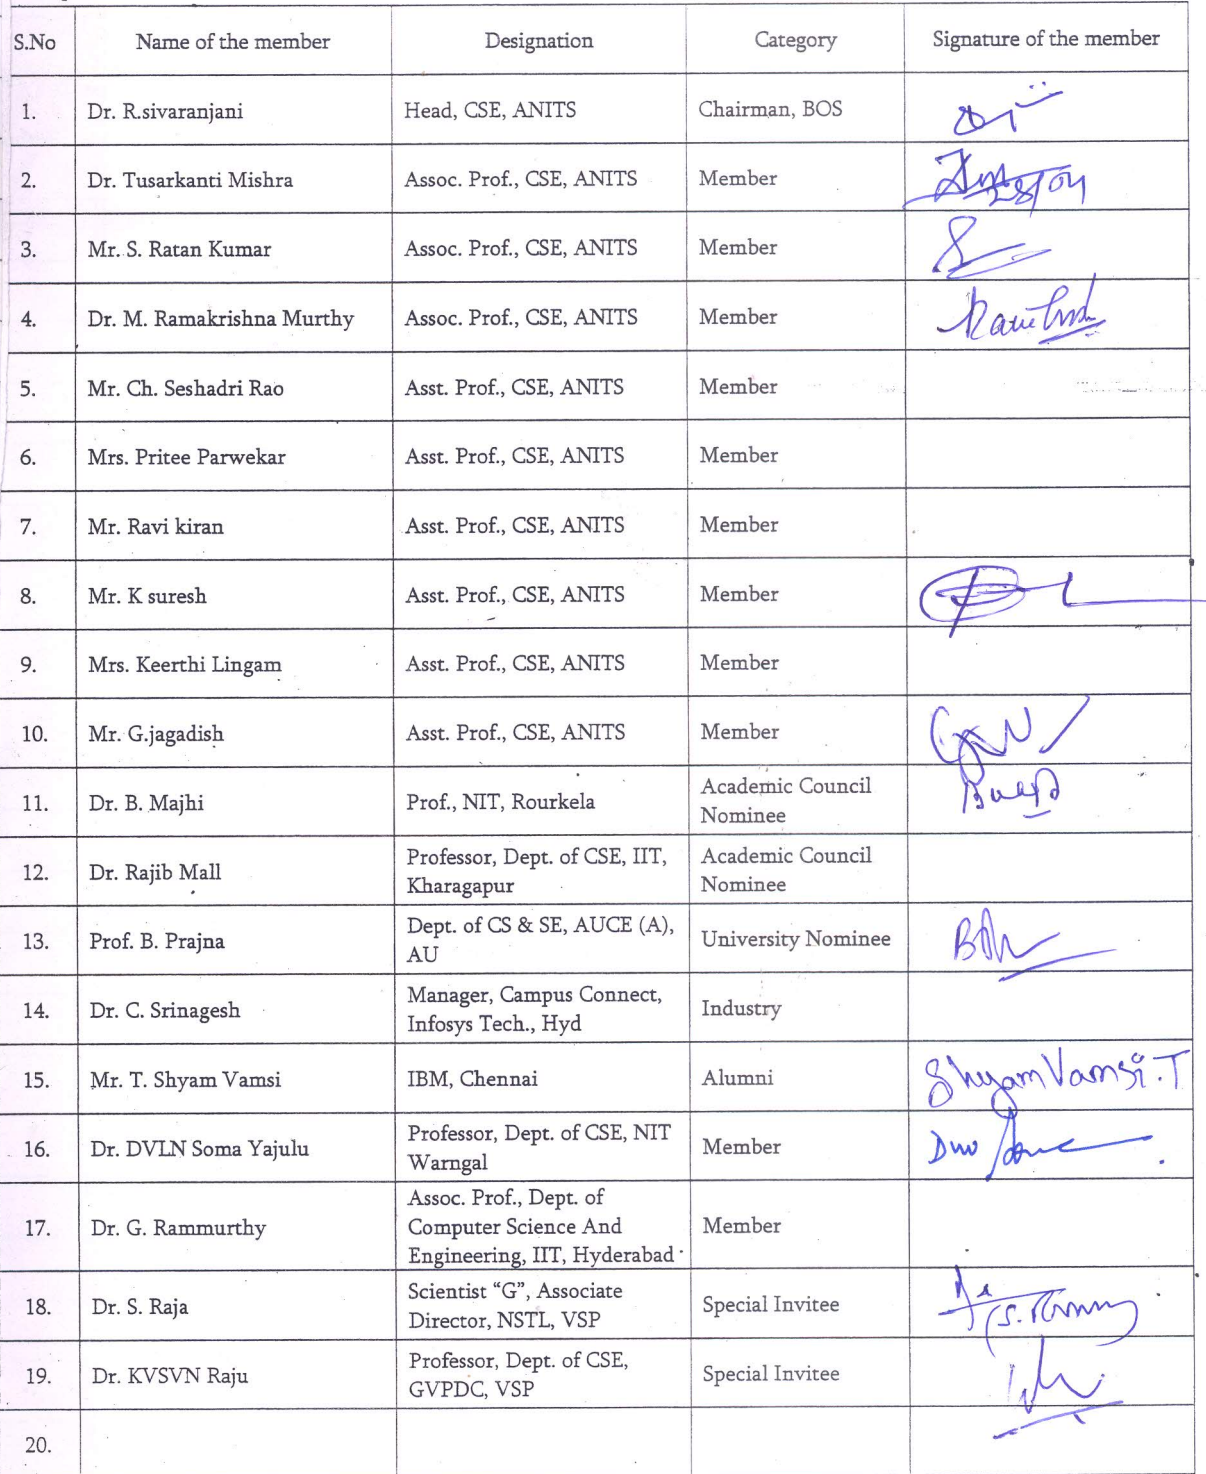 S.No Name of the member Designation Category Signature of the member
1. Dr. R.sivaranjani Head, CSE, ANITS Chairman, BOS
2. Dr. Tusarkanti Mishra Assoc. Prof., CSE, ANITS Member 28/04
3. Mr. S. Ratan Kumar Assoc. Prof., CSE, ANITS Member
4. Dr. M. Ramakrishna Murthy Assoc. Prof., CSE, ANITS Member
5. Mr. Ch. Seshadri Rao Asst. Prof., CSE, ANITS Member
6. Mrs. Pritee Parwekar Asst. Prof., CSE, ANITS Member
7. Mr. Ravi kiran Asst. Prof., CSE, ANITS Member
8. Mr. K suresh Asst. Prof., CSE, ANITS Member
9. Mrs. Keerthi Lingam Asst. Prof., CSE, ANITS Member
10. Mr. G.jagadish Asst. Prof., CSE, ANITS Member
11. Dr. B. Majhi Prof., NIT, Rourkela Academic Council
Nominee
12. Dr. Rajib Mall Professor, Dept. of CSE, IIT, Academic Council
Kharagapur Nominee
13. Prof. B. Prajna Dept. of CS & SE, AUCE (A), University Nominee
AU
14. Dr. C. Srinagesh Manager, Campus Connect, Industry
Infosys Tech., Hyd
15. Mr. T. Shyam Vamsi IBM, Chennai Alumni Shyam Vamsi.T
16. Dr. DVLN Soma Yajulu Professor, Dept. of CSE, NIT Member
Warngal
Assoc. Prof., Dept. of
17. Dr. G. Rammurthy Computer Science And Member
Engineering, IIT, Hyderabad
18. Dr. S. Raja Scientist “G”, Associate Special Invitee
Director, NSTL, VSP
19. Dr. KVSVN Raju Professor, Dept. of CSE, Special Invitee
GVPDC, VSP
20.